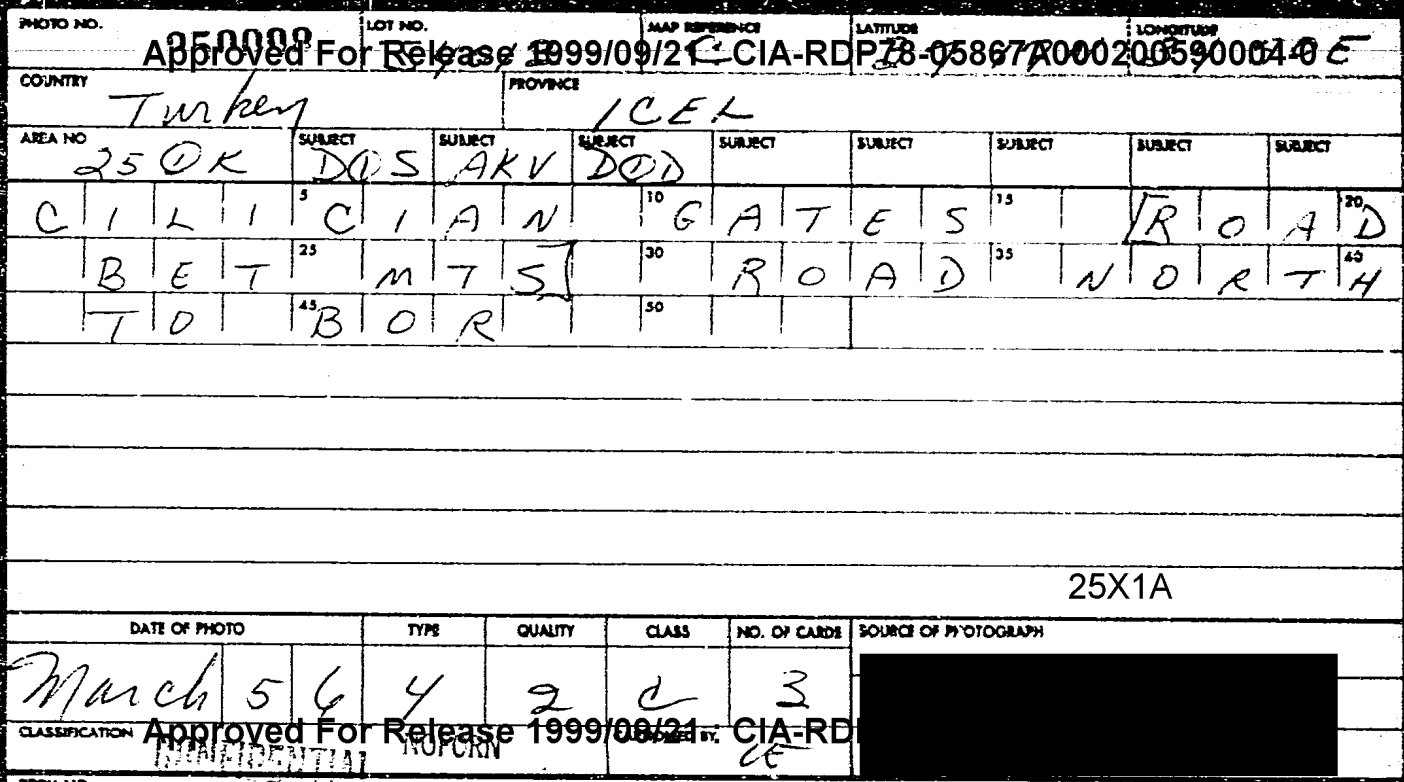 PHOTO NO. LOT NO. MAP REFERENCE LATITUDE LONGITUDE
Approved For Release 1999/09/21 : CIA-RDP78-05867A000200590004-0 E
COUNTRY Turkey PROVINCE ICEL
AREA NO SUBJECT SUBJECT SUBJECT SUBJECT SUBJECT SUBJECT SUBJECT SUBJECT
25 O K DOS AKV DOD
5 10 15 20
CILICIAN GATES [ROAD
25 30 35 40
BET MTS] ROAD NORTH
45 50
TO BOR
25X1A
DATE OF PHOTO TYPE QUALITY CLASS NO. OF CARDS SOURCE OF PHOTOGRAPH
March 5 6 4 2 C 3
CLASSIFICATION Approved For Release 1999/09/21 : CIA-RDP
CONFIDENTIAL NOFORN CE